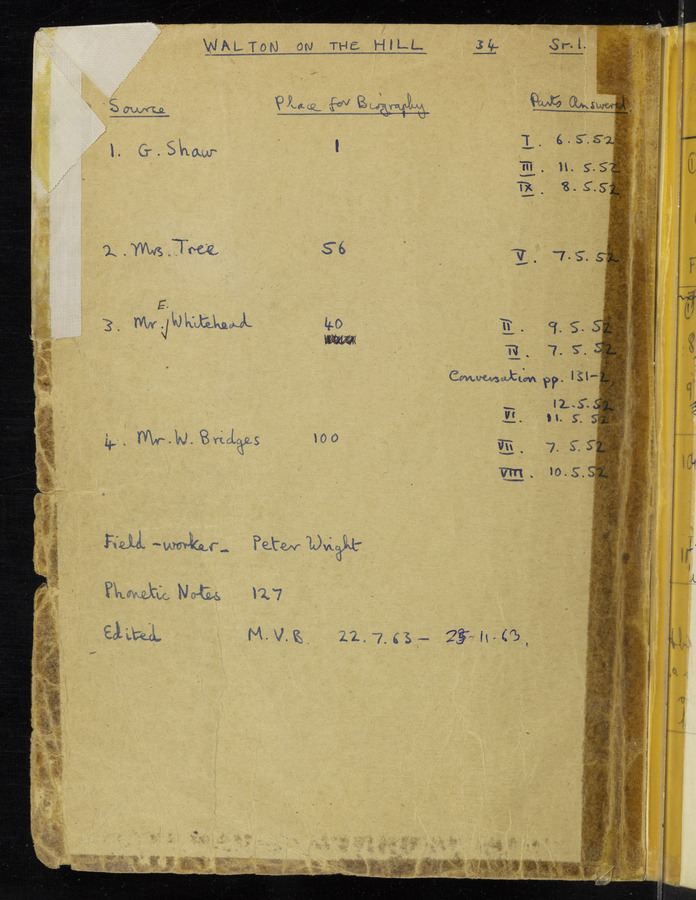 WALTON ON THE HILL 34 Sr.1.
Source Place for Biography Parts Answered
1. G. Shaw 1 I. 6.5.52
III. 11.5.52
IX. 8.5.52
2. Mrs. Tree 56 V. 7.5.52
3. Mr. E. Whitehead 40 II. 9.5.52
IV. 7.5.52
Conversation pp. 131-2
12.5.52
VI. 11.5.52
4. Mr. W. Bridges 100 VII. 7.5.52
VIII. 10.5.52
Field-worker - Peter Wright
Phonetic Notes 127
Edited M.V.B. 22.7.63 - 25-11-63.